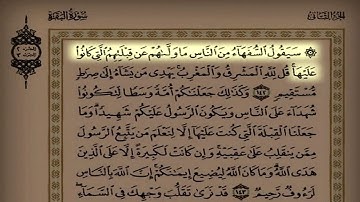 الجزء الثاني
سورة البقرة
سَيَقُولُ السُّفَهَاءُ مِنَ النَّاسِ مَا وَلَّىٰهُمْ عَن قِبْلَتِهِمُ الَّتِي كَانُوا
عَلَيْهَا قُل لِّلَّهِ الْمَشْرِقُ وَالْمَغْرِبُ يَهْدِي مَن يَشَاءُ إِلَىٰ صِرَاطٍ
مُّسْتَقِيمٍ ١٤٢ وَكَذَٰلِكَ جَعَلْنَاكُمْ أُمَّةً وَسَطًا لِّتَكُونُوا
شُهَدَاءَ عَلَى النَّاسِ وَيَكُونَ الرَّسُولُ عَلَيْكُمْ شَهِيدًا وَمَا
جَعَلْنَا الْقِبْلَةَ الَّتِي كُنتَ عَلَيْهَا إِلَّا لِنَعْلَمَ مَن يَتَّبِعُ الرَّسُولَ
مِمَّن يَنقَلِبُ عَلَىٰ عَقِبَيْهِ وَإِن كَانَتْ لَكَبِيرَةً إِلَّا عَلَى الَّذِينَ
هَدَى اللَّهُ وَمَا كَانَ اللَّهُ لِيُضِيعَ إِيمَانَكُمْ إِنَّ اللَّهَ بِالنَّاسِ
لَرَءُوفٌ رَّحِيمٌ ١٤٣ قَدْ نَرَىٰ تَقَلُّبَ وَجْهِكَ فِي السَّمَاءِ